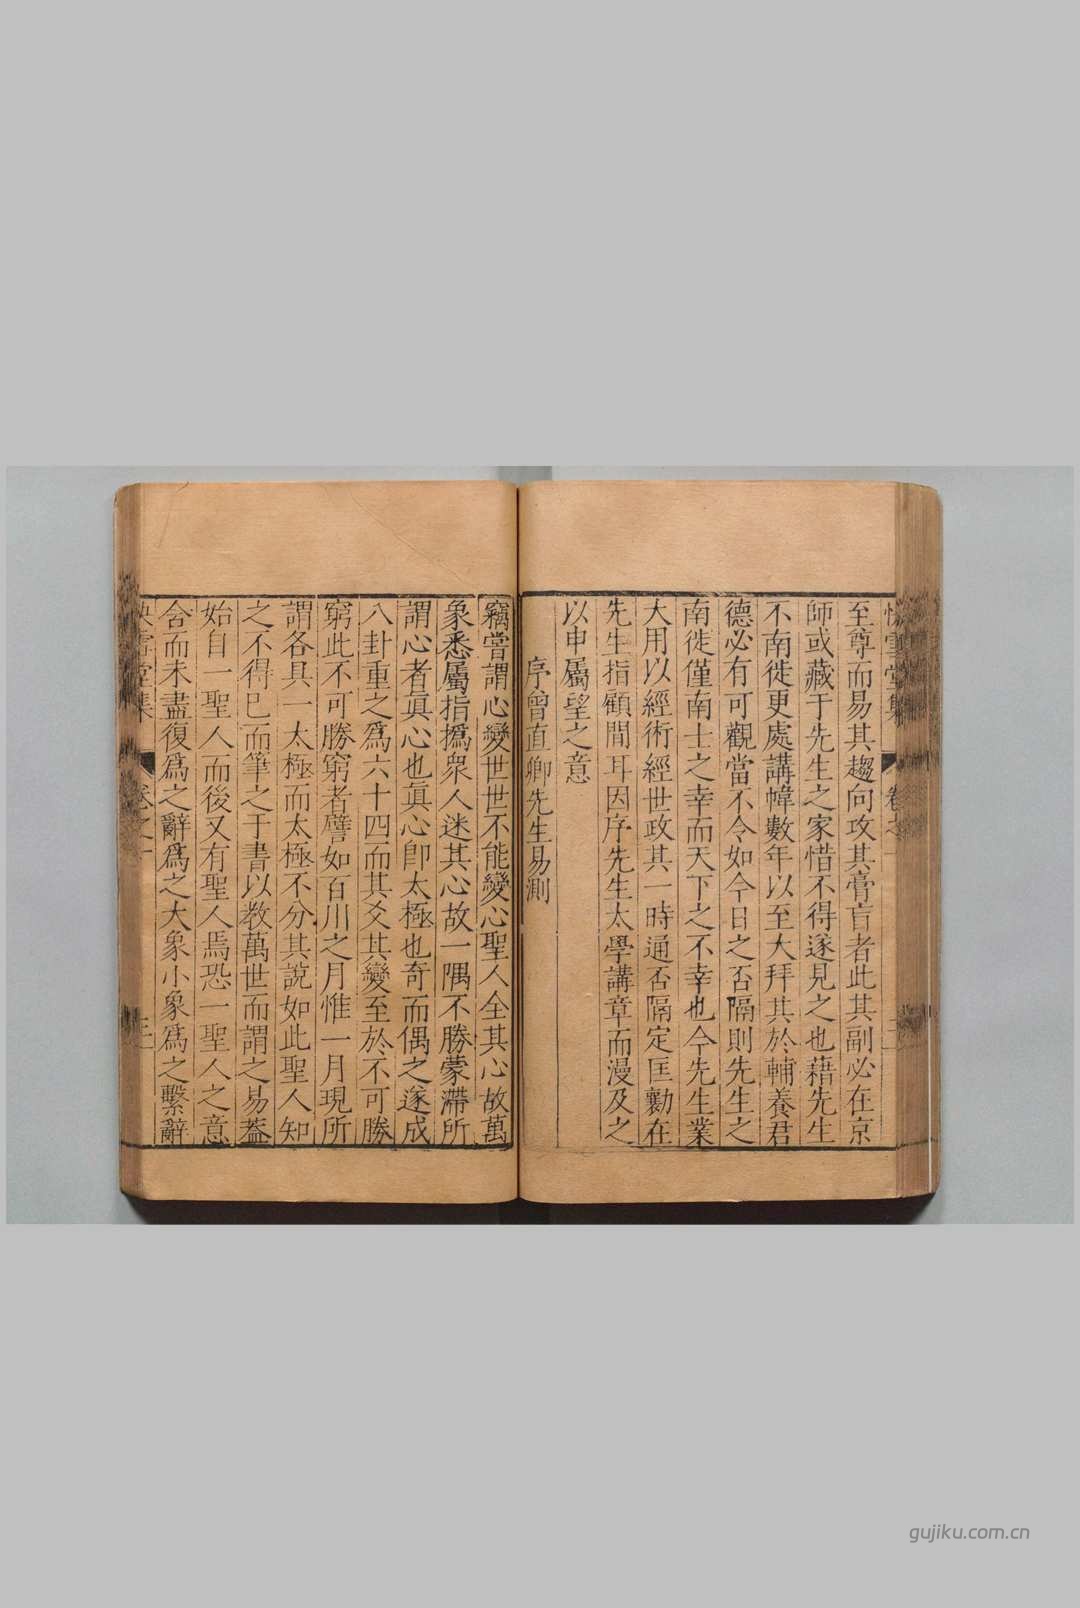 快雪堂集 卷之一
至尊而易其趨向攻其膏肓者此其副必在京
師或藏于先生之家惜不得遂見之也藉先生
不南徙更處講幃數年以至大拜其於輔養君
德必有可觀當不令如今日之否隔則先生之
南徙僅南士之幸而天下之不幸也今先生業
大用以經術經世政其一時通否隔定匡勷在
先生指顧間耳因序先生太學講章而漫及之
以申屬望之意
序曾直卿先生易測
竊嘗謂心變世世不能變心聖人全其心故萬
象悉屬指撝衆人迷其心故一隅不勝蒙滯所
謂心者眞心也眞心卽太極也奇而偶之遂成
八卦重之爲六十四而其爻其變至於不可勝
窮此不可勝窮者譬如百川之月惟一月現所
謂各具一太極而太極不分其說如此聖人知
之不得已而筆之于書以敎萬世而謂之易蓋
始自一聖人而後又有聖人焉恐一聖人之意
含而未盡復爲之辭爲之大象小象爲之繫辭
快雪堂集 卷之一 三
gujiku.com.cn